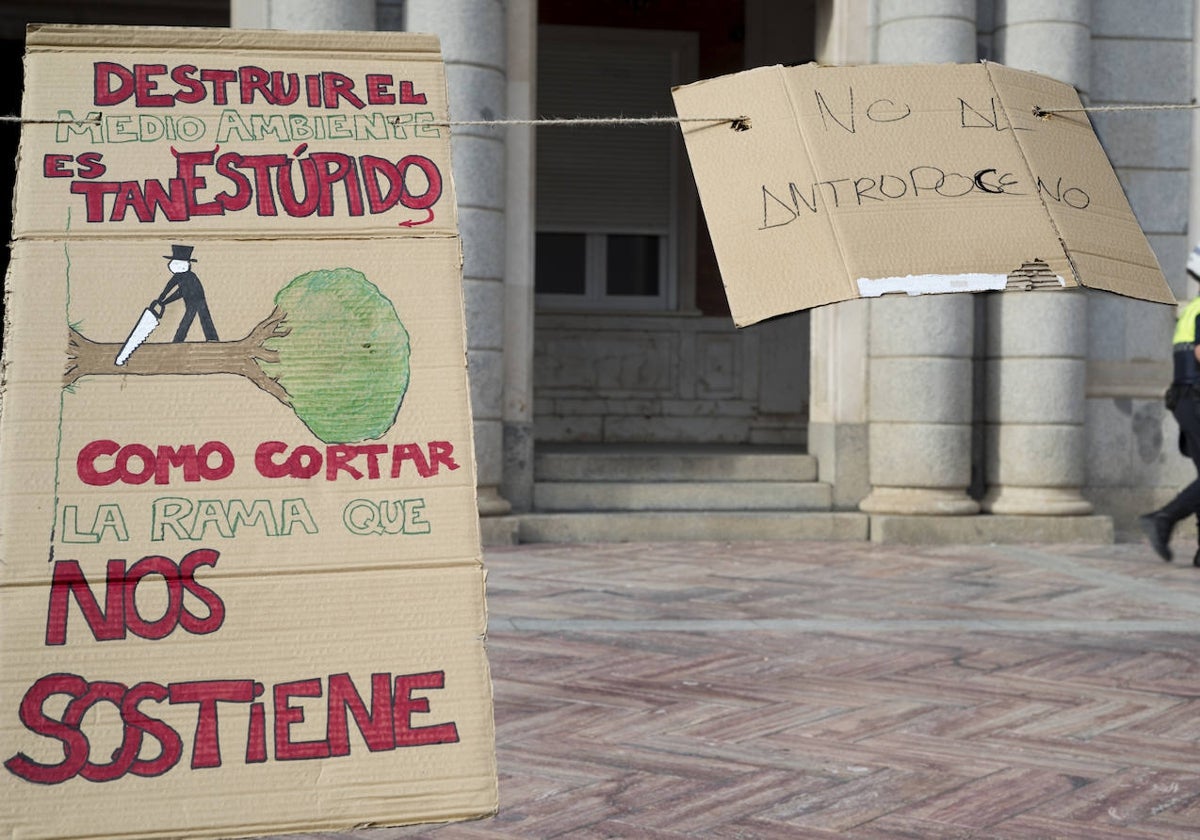 DESTRUIR EL
MEDIO AMBIENTE
ES
TAN ESTÚPIDO
COMO CORTAR
LA RAMA QUE
NOS
SOSTIENE
NO AL
ANTROPOCENO